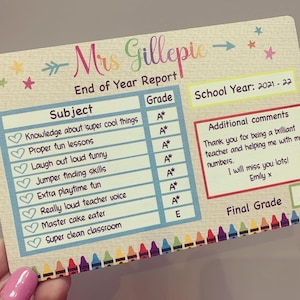 Mrs Gillepie
End of Year Report
School Year: 2021 - 22
Subject Grade
Knowledge about 'super cool things A*
Proper fun lessons A*
Laugh out loud funny A*
Jumper finding skills A*
Extra playtime fun A*
Really loud teacher voice A*
Master cake eater A*
Super clean classroom E
Additional comments
Thank you for being a brilliant
teacher and helping me with my
numbers.
I will miss you lots!
Emily x
Final Grade